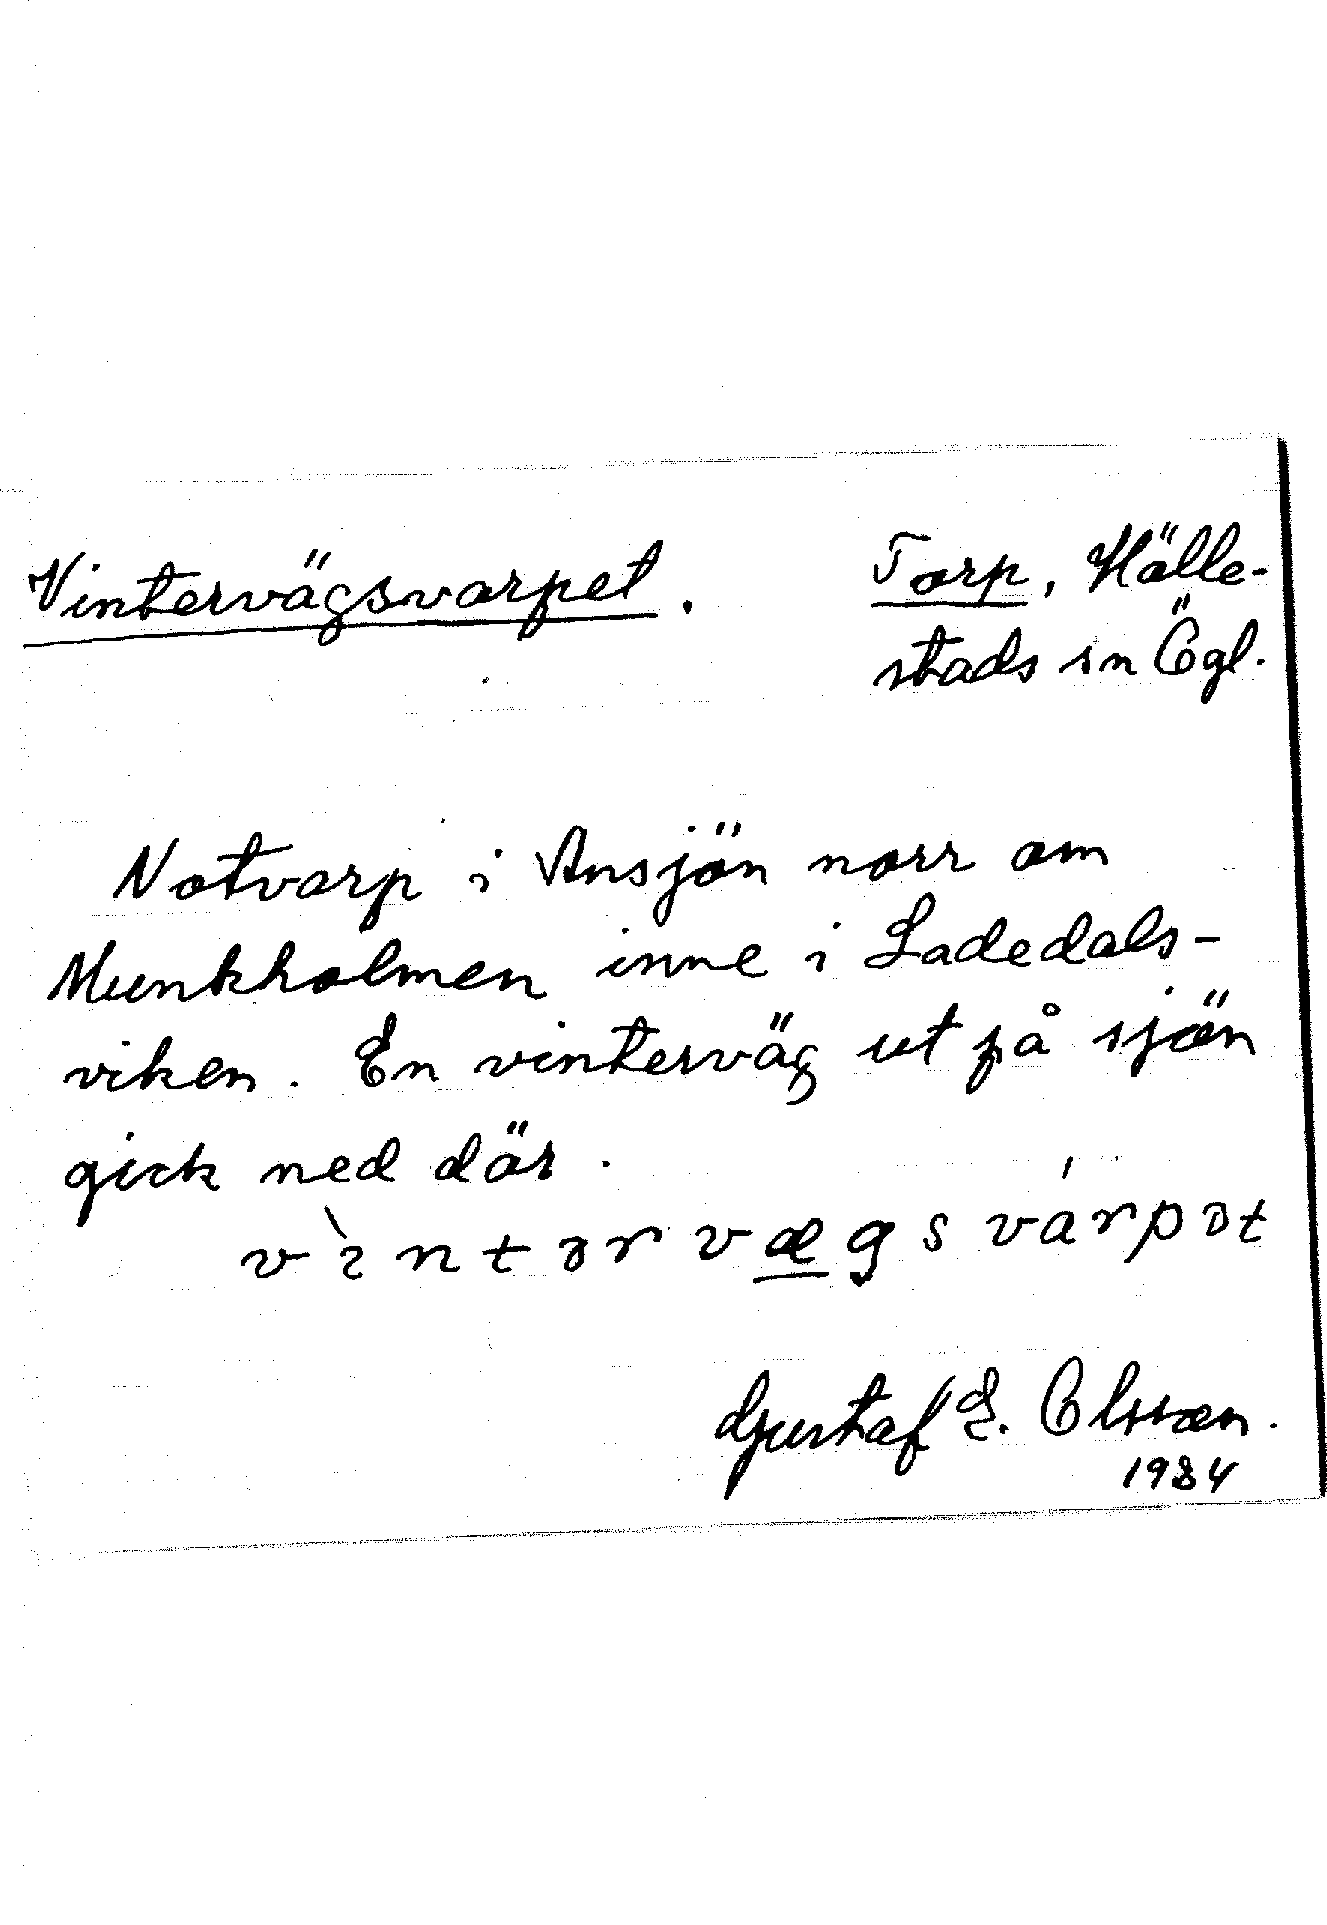 Vintervägsvarpet. Torp, Hälle-
stads sn Ögl.
Notvarp i Ansjön norr om
Munkholmen inne i Ladedals-
viken. En vinterväg ut på sjön
gick ned där.
vìntərvæ̲gsvárpət
Gustaf E. Olsson.
1984